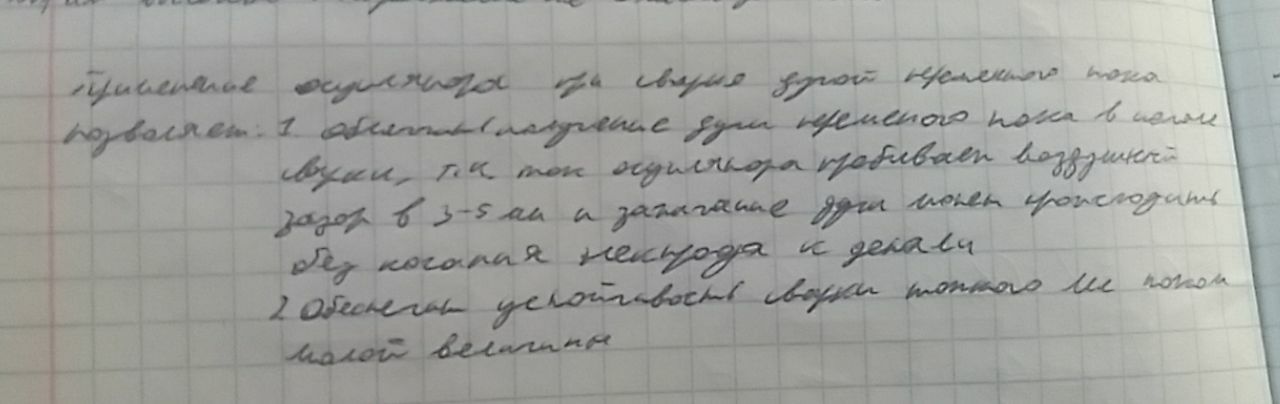 Применение осцилятора при сварке дугой переменного тока
позволяет: 1. облегчить получение дуги переменого тока в начале
сварки, т.к. ток осцилятора пробивает воздушный
зазор в 3-5 мм и зажигание дуги может происходить
без касания электрода к детали
2 Обеспечить устойчивость сварки тонкого Ме током
малой величины